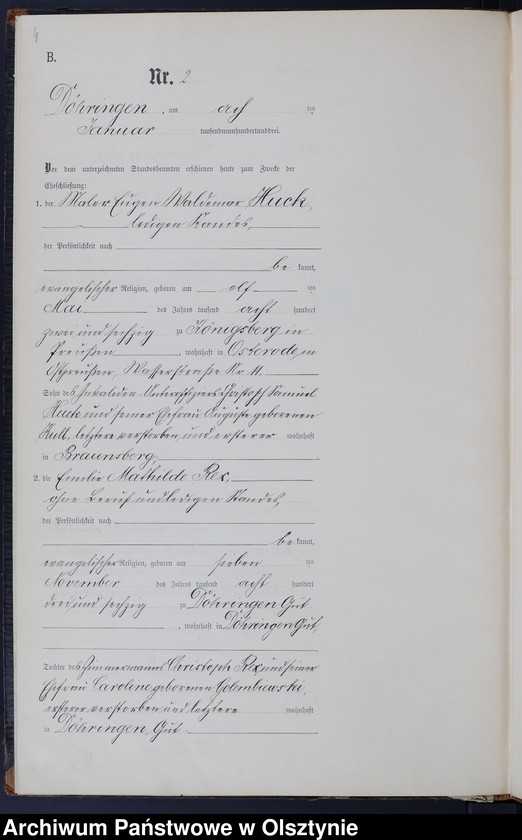 4
B.
Nr. 2
Döhringen, am acht ten
Januar tausendneunhundertunddrei.
Vor dem unterzeichneten Standesbeamten erschienen heute zum Zwecke der
Eheschließung:
1. der Maler Eugen Waldemar Huck,
ledigen Standes,
der Persönlichkeit nach
be kannt,
evangelischer Religion, geboren am elf ten
Mai des Jahres tausend acht hundert
zwei und sechzig zu Königsberg in
Preußen, wohnhaft in Osterode in
Ostpreußen, Wasserstraße Nr. 11.
Sohn des Invaliden Unteroffiziers Christoph Samuel
Huck und seiner Ehefrau Auguste geborenen
letztere verstorben und ersterer wohnhaft
in Braunsberg.
2. die Emilie Mathilde Rex,
ohne Beruf und ledigen Standes,
der Persönlichkeit nach
be kannt,
evangelischer Religion, geboren am sieben ten
November des Jahres tausend acht hundert
drei und sechzig zu Döhringen Gut
, wohnhaft in Döhringen Gut,
Tochter des Zimmermanns Christoph Rex und seiner
Ehefrau Caroline geborenen Golembiewski,
ersterer verstorben und letztere wohnhaft
in Döhringen, Gut.
Archiwum Państwowe w Olsztynie